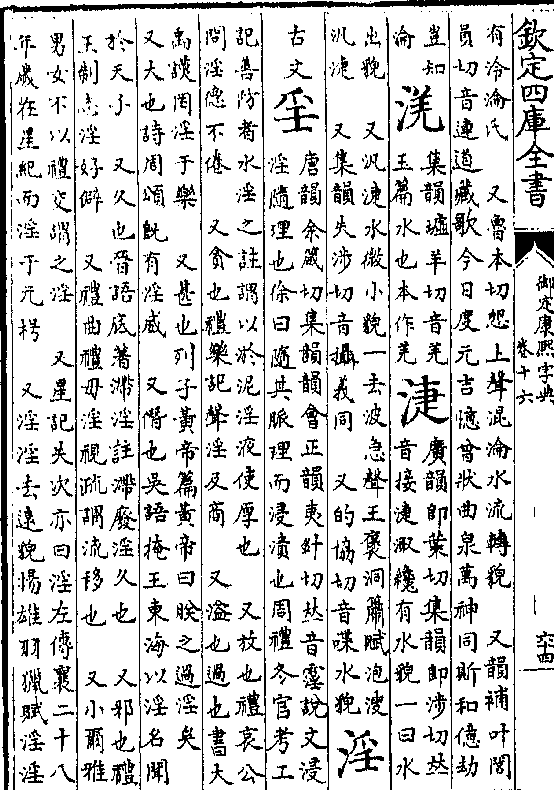 欽定四庫全書
御定康熙字典
卷十六
六十四
有泠淪氏 又魯本切怨上聲混淪水流轉貌 又韻補叶閭
員切音連道藏歌今日度元吉憶曾狀曲泉萬神同斯和億劫
豈知
淪
㳾
集韻墟羊切音羌
玉篇水也本作羌
淁
廣韻即葉切集韻即涉切𠀤
音接淁溆纔有水貌一曰水
出貌 又汎淁水微小貌一云波急聲王褒洞簫賦泡溲
汎淁 又集韻失涉切音攝義同 又的協切音喋水貌
淫
古文
㸒
唐韻余箴切集韻韻會正韻夷斟切𠀤音霪說文浸
淫隨理也徐曰隨其脈理而浸漬也周禮冬官考工
記善防者水淫之註謂以淤泥淫液使厚也 又放也禮哀公
問淫德不倦 又貪也禮樂記聲淫及商 又溢也過也書大
禹謨罔淫于樂 又甚也列子黃帝篇黃帝曰朕之過淫矣
又大也詩周頌旣有淫威 又僭也吳語掩王東海以淫名聞
於天子 又久也晉語底著滯淫註滯廢淫久也 又邪也禮
王制志淫好僻 又禮曲禮毋淫視疏謂流移也 又小爾雅
男女不以禮交謂之淫 又星記失次亦曰淫左傳襄二十八
年歲在星紀而淫于元枵 又淫淫去遠貌揚雄羽獵賦淫淫